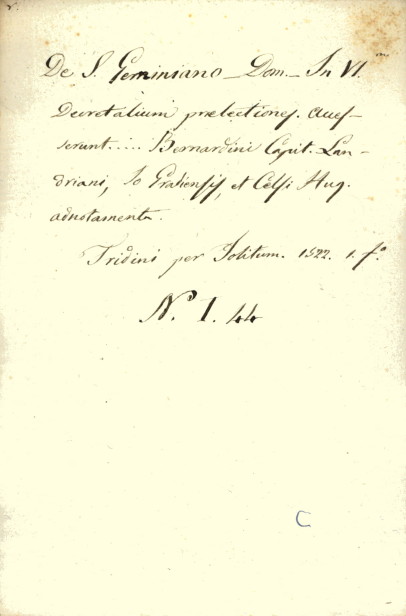 De S. Geminiano – Dom. – In VI.m
Decretalium prælectiones. Acces-
serunt..... Bernardini Capit. Lan-
driani, Jo Gratiensis, et Celsi Hug.
adnotamenta.
Tridini per Jolitum. 1522. 1. f.o
N.o 1. 44
C